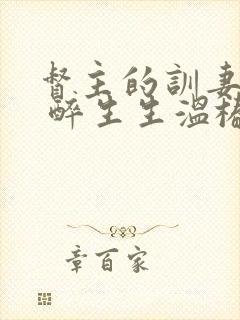 督主的訓妻
醉生生溫椿
章百家